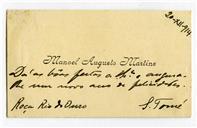 20-XII-914
Manoel Augusto Martins
Dá as bôas festas a V. e augura-
lhe um novo ano de felicidades.
Roça Rio do Ouro S. Tomé